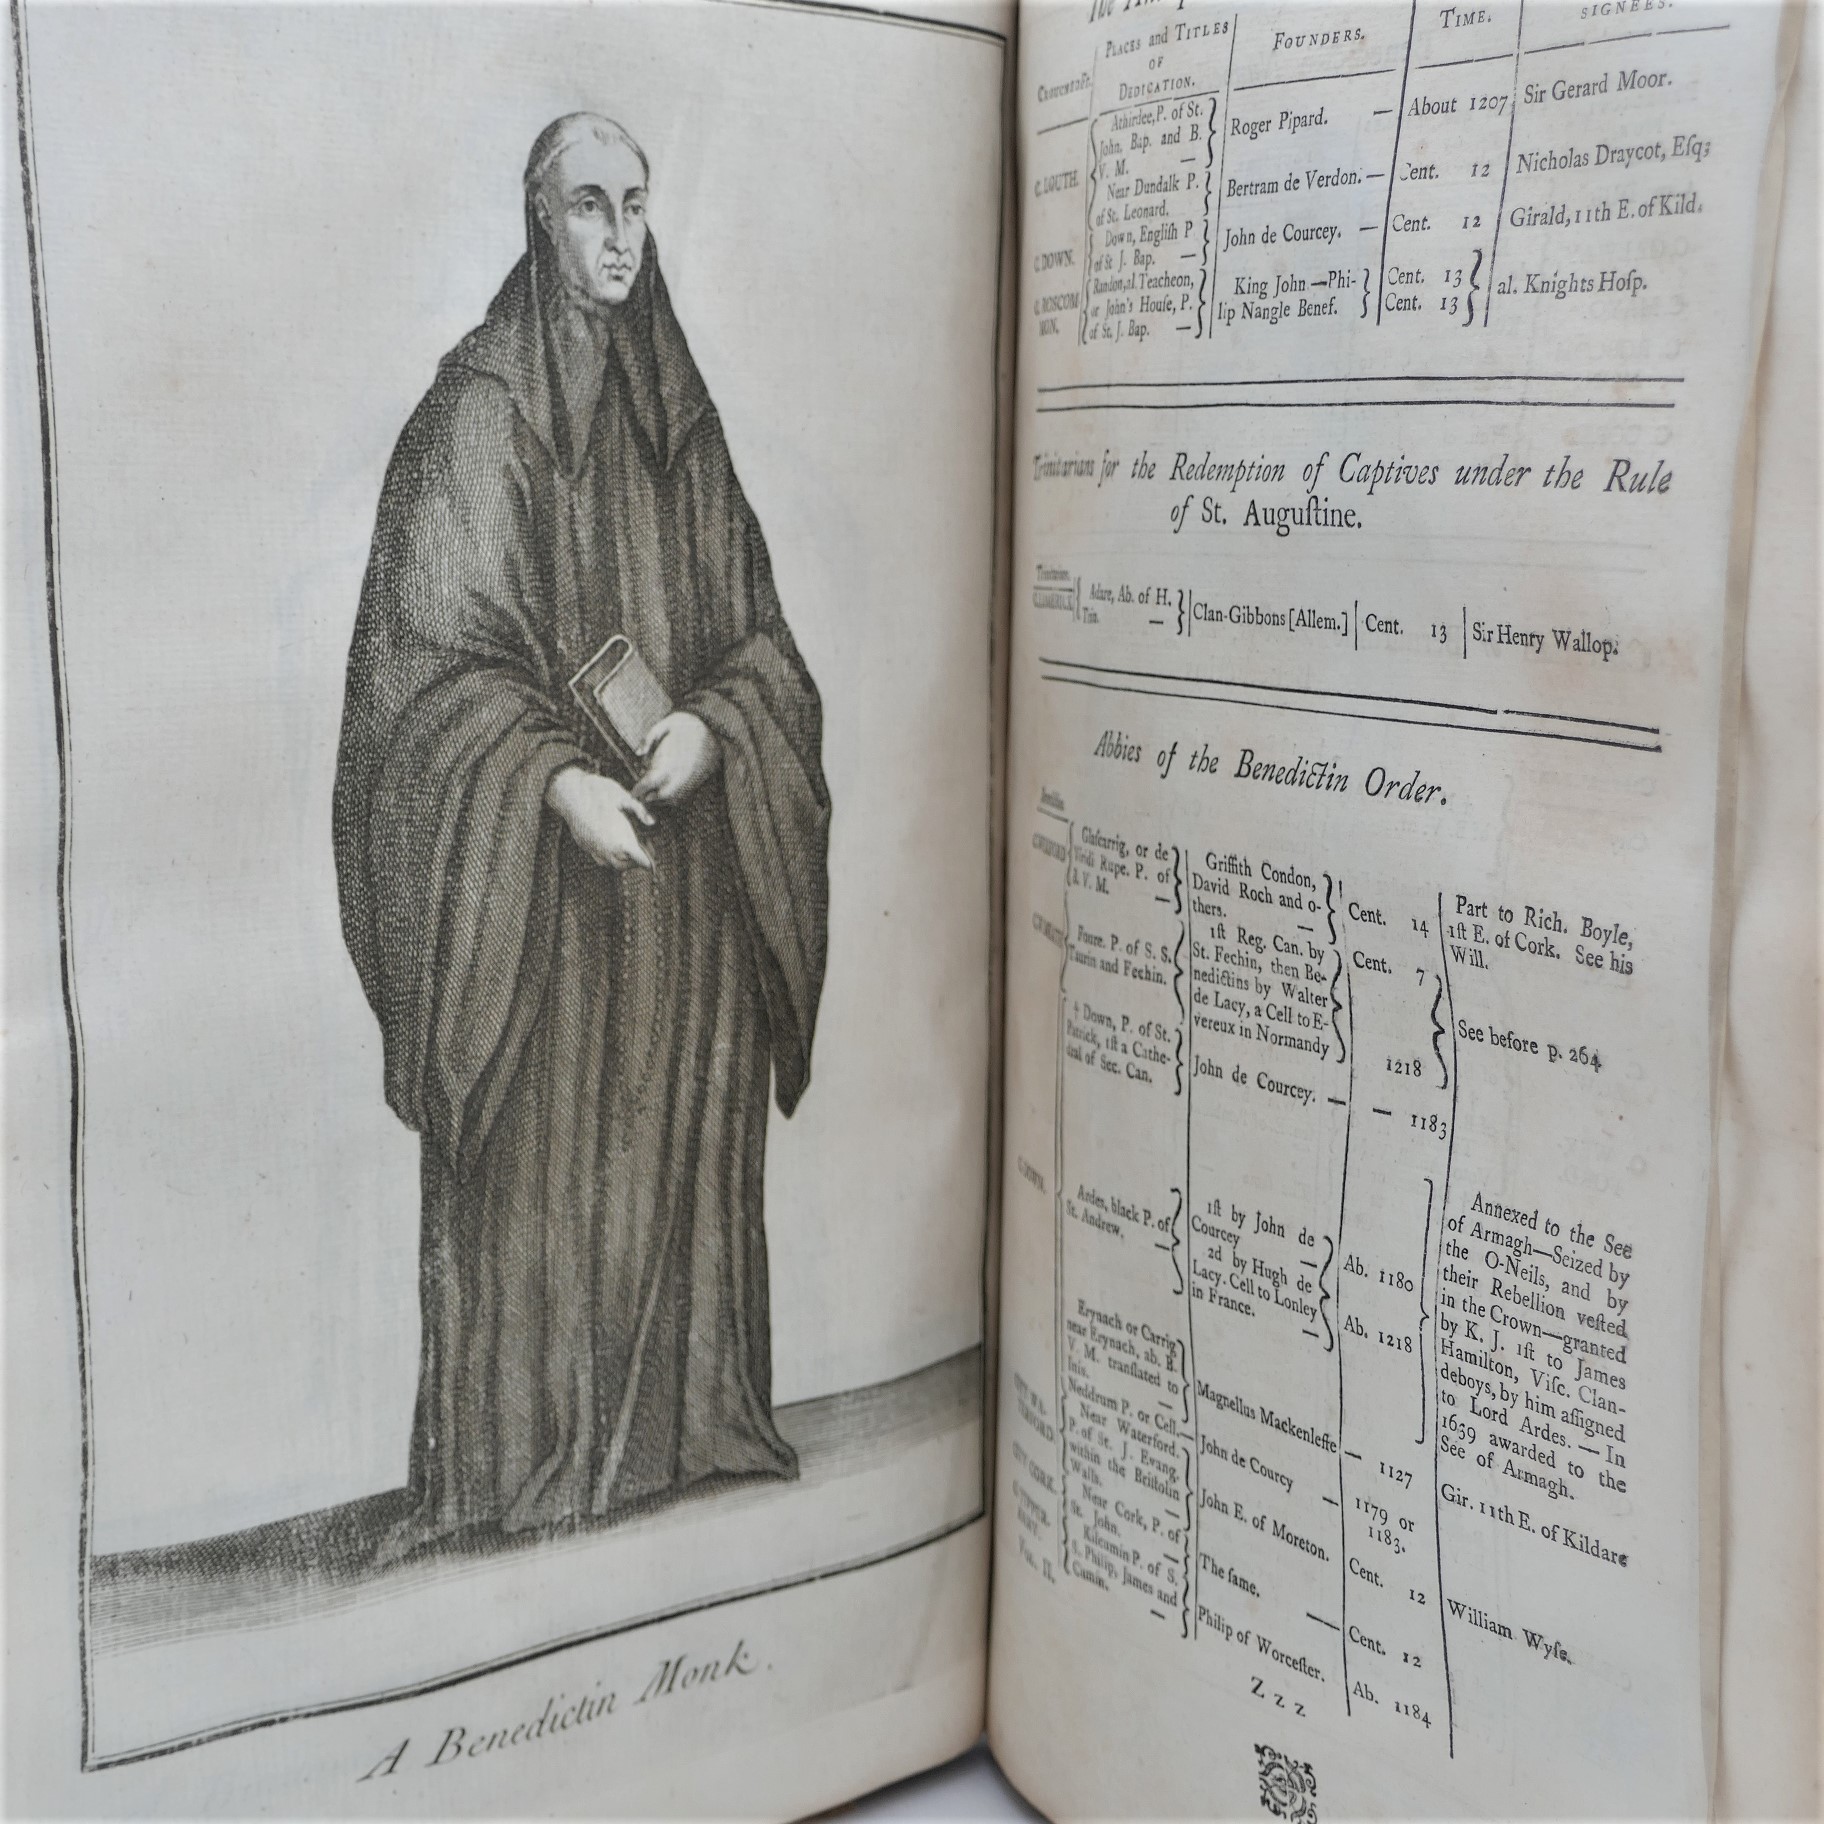 A Benedictin Monk.
PLACES and TITLES
OF
DEDICATION.
FOUNDERS.
TIME.
SIGNEES.
C. LOUTH.
Athirdee, P. of St.
John, Bap. and B.
V. M. —
Roger Pipard. —
About 1207
Sir Gerard Moor.
Near Dundalk P.
of St. Leonard.
Bertram de Verdon. —
Cent. 12
Nicholas Draycot, Eſq;
C. DOWN.
Down, Engliſh P
of St J. Bap. —
John de Courcey. —
Cent. 12
Girald, 11th E. of Kild.
C. ROSCOM
MON.
Randon, al. Teacheon,
or John's Houſe, P.
of St. J. Bap. —
King John — Phi-
lip Nangle Benef.
Cent. 13
Cent. 13
al. Knights Hoſp.
Trinitarians for the Redemption of Captives under the Rule
of St. Auguſtine.
Adare, Ab. of H.
Trin. —
Clan-Gibbons [Allem.]
Cent. 13
Sir Henry Wallop.
Abbies of the Benedictin Order.
Glaſcarrig, or de
Viridi Rupe. P. of
B. V. M. —
Griffith Condon,
David Roch and o-
thers. —
Cent. 14
Part to Rich. Boyle,
1ſt E. of Cork. See his
Will.
Foure. P. of S. S.
Taurin and Fechin.
1ſt Reg. Can. by
St. Fechin, then Be-
nedictins by Walter
de Lacy, a Cell to E-
vereux in Normandy
Cent. 7
1218
See before p. 264
C. DOWN.
Down, P. of St.
Patrick, 1ſt a Cathe-
dral of Sec. Can.
John de Courcey. —
— 1183
Ardes, black P. of
St. Andrew. —
1ſt by John de
Courcey —
2d by Hugh de
Lacy. Cell to Lonley
in France. —
Ab. 1180
Ab. 1218
Annexed to the See
of Armagh—Seized by
the O-Neils, and by
their Rebellion veſted
in the Crown—granted
by K. J. 1ſt to James
Hamilton, Viſc. Clan-
deboys, by him aſſigned
to Lord Ardes. — In
1639 awarded to the
See of Armagh.
Erynach or Carrig
near Erynach, ab. B.
V. M. tranſlated to
Inis. —
Magnellus Mackenleffe
— 1127
Gir. 11th E. of Kildare
Neddrum P. or Cell. —
John de Courcy —
1179 or
1183.
Near Waterford,
P. of St. J. Evang.
within the Briſtolin
Walls. —
John E. of Moreton.
Cent. 12
William Wyſe.
CITY CORK.
Near Cork, P. of
St. John. —
The ſame. —
Cent. 12
Kilcumin P. of S.
S. Philip, James and
Cumin. —
Philip of Worceſter.
Ab. 1184
Vol. II.
Z z z